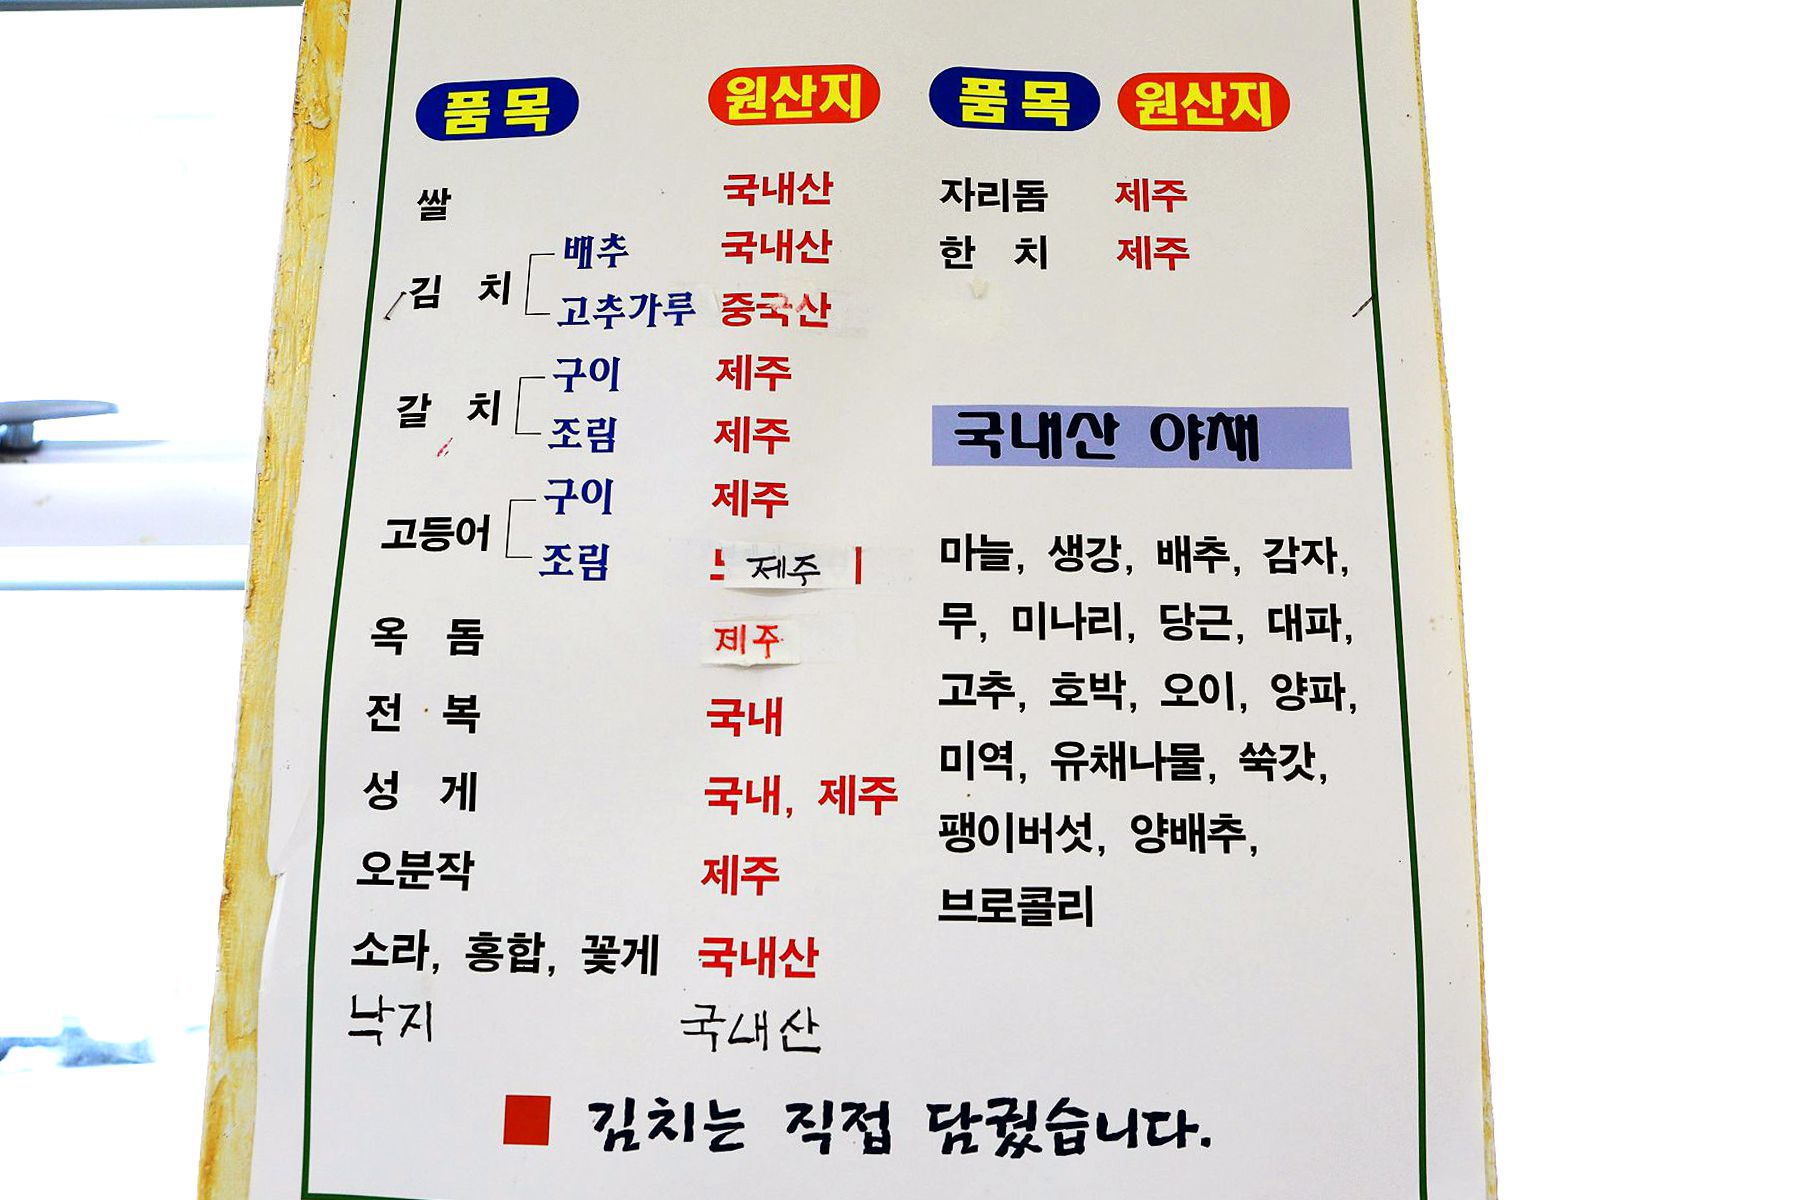 품목 원산지
쌀 국내산
김치 배추 국내산
고추가루 중국산
갈치 구이 제주
조림 제주
고등어 구이 제주
조림 제주
옥돔 제주
전복 국내
성게 국내, 제주
오분작 제주
소라, 홍합, 꽃게 국내산
낙지 국내산
품목 원산지
자리돔 제주
한치 제주
국내산 야채
마늘, 생강, 배추, 감자,
무, 미나리, 당근, 대파,
고추, 호박, 오이, 양파,
미역, 유채나물, 쑥갓,
팽이버섯, 양배추,
브로콜리
김치는 직접 담궜습니다.